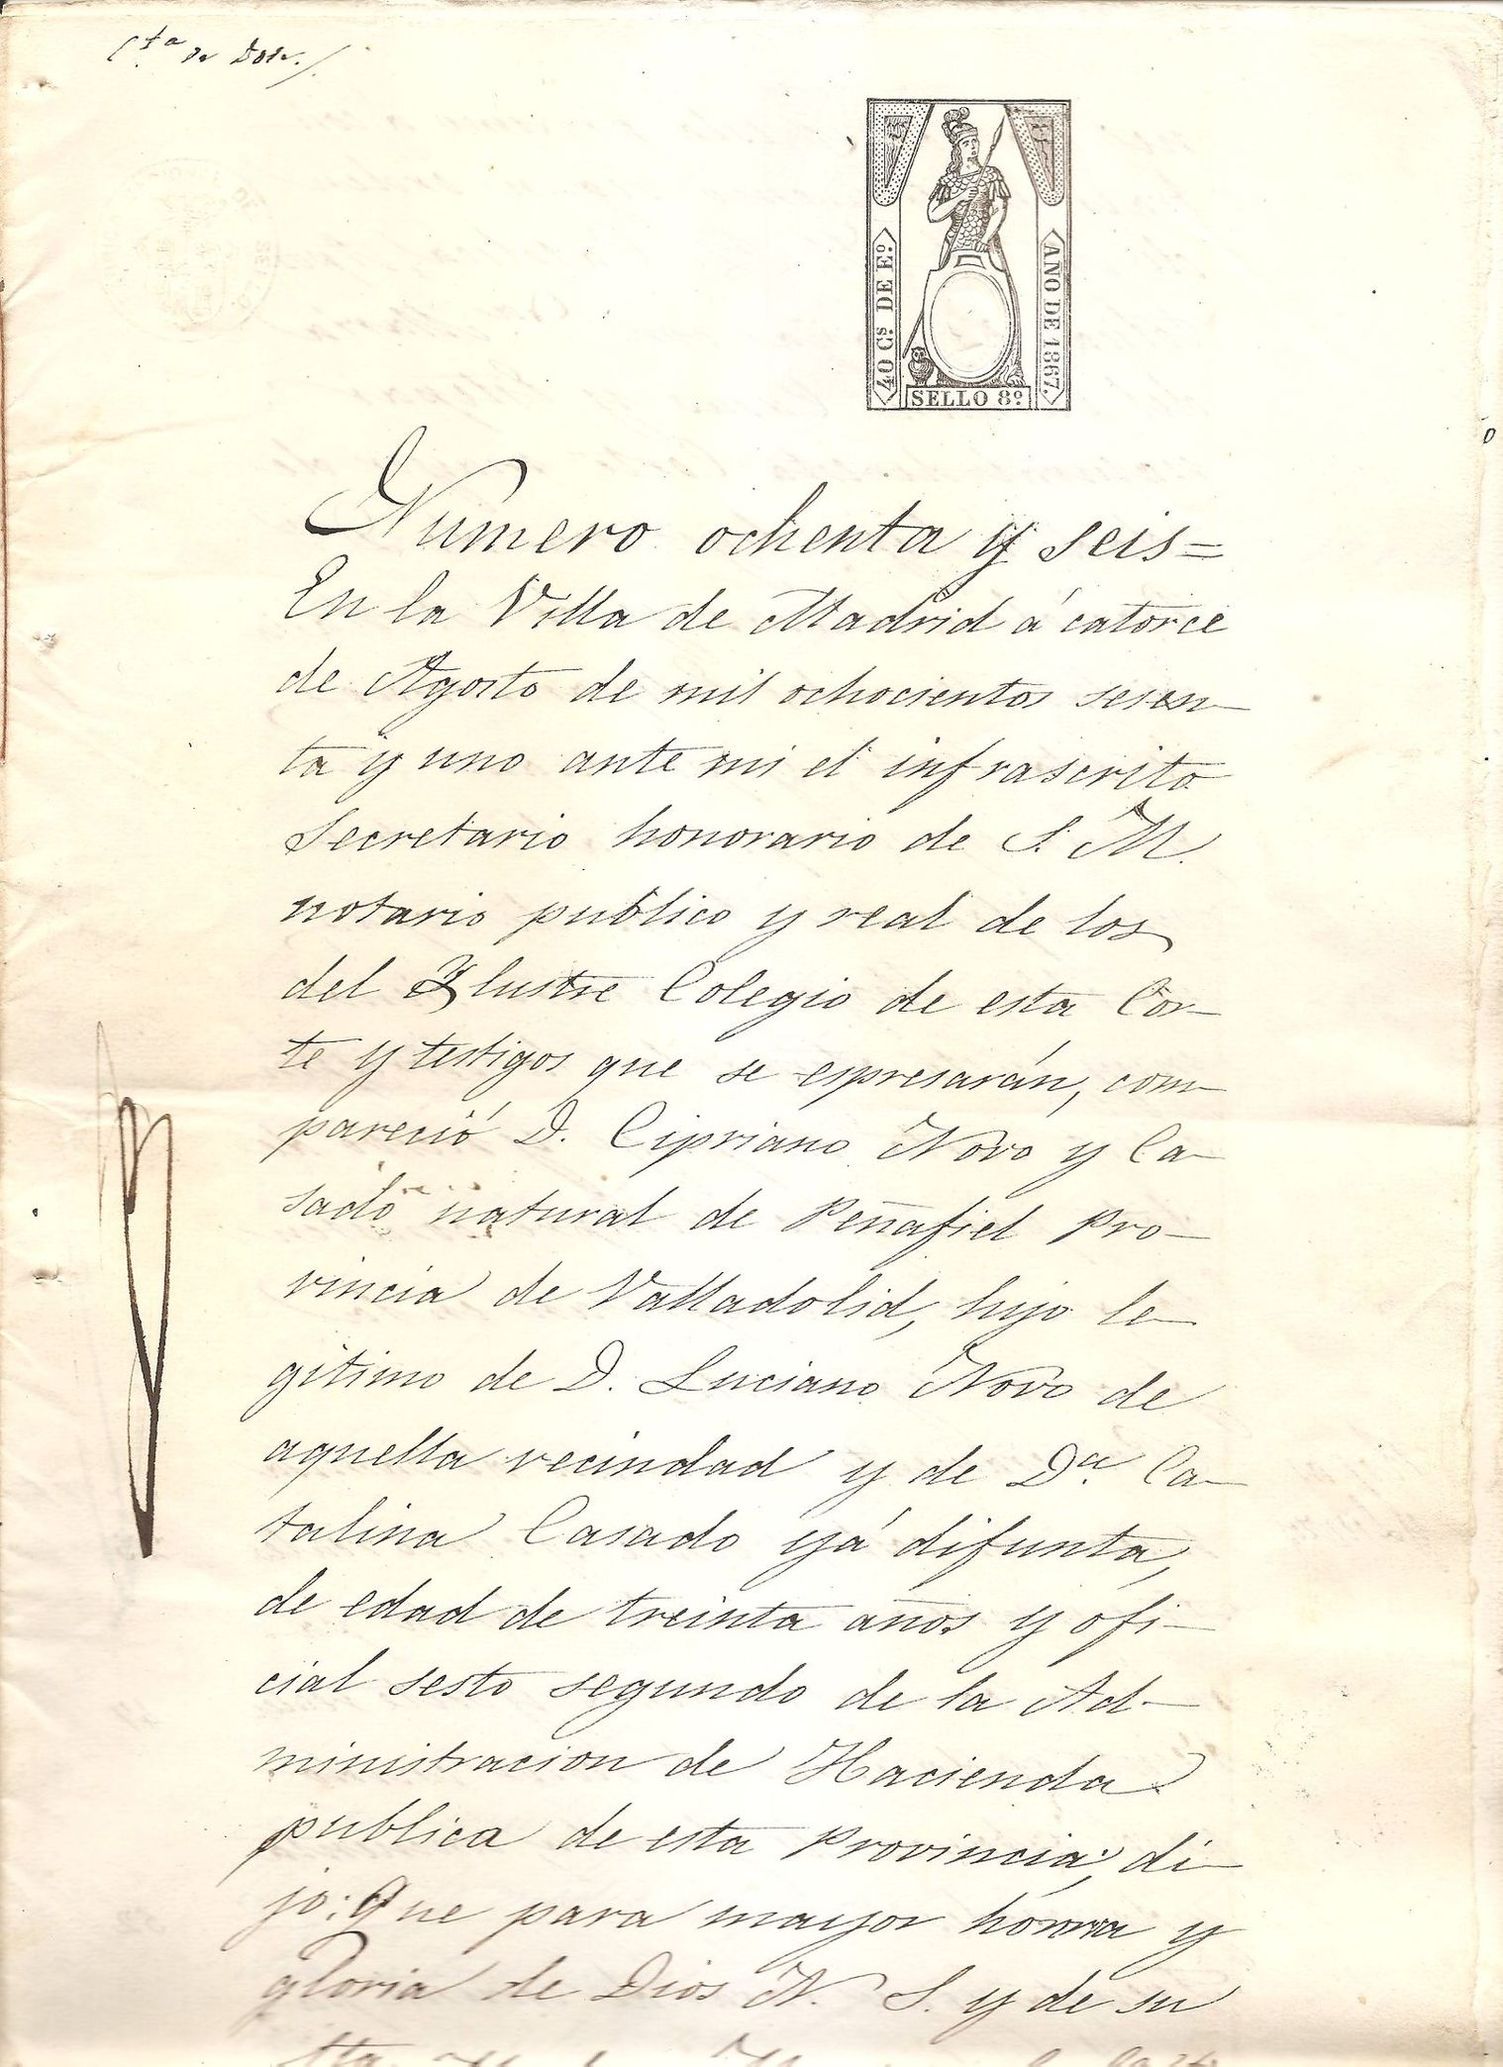 Cta de Dote./.
40 Cs. DE Eo.
AÑO DE 1867.
SELLO 8o.
Numero ochenta y seis=
En la Villa de Madrid á catorce
de Agosto de mil ochocientos sesen-
ta y uno ante mi el infrascrito
Secretario honorario de S. M.
notario publico y real de los
del Ylustre Colegio de esta Cor-
te y testigos que se espresarán, com-
pareció D. Cipriano Novo y Ca-
sado natural de Peñafiel Pro-
vincia de Valladolid, hijo le-
gitimo de D. Luciano Novo de
aquella vecindad y de Da. Ca-
talina Casado yá difunta,
de edad de treinta años y ofi-
cial sesto segundo de la Ad-
ministracion de Hacienda
publica de esta Provincia, di-
jo: Que para mayor honra y
gloria de Dios N. S. y de su